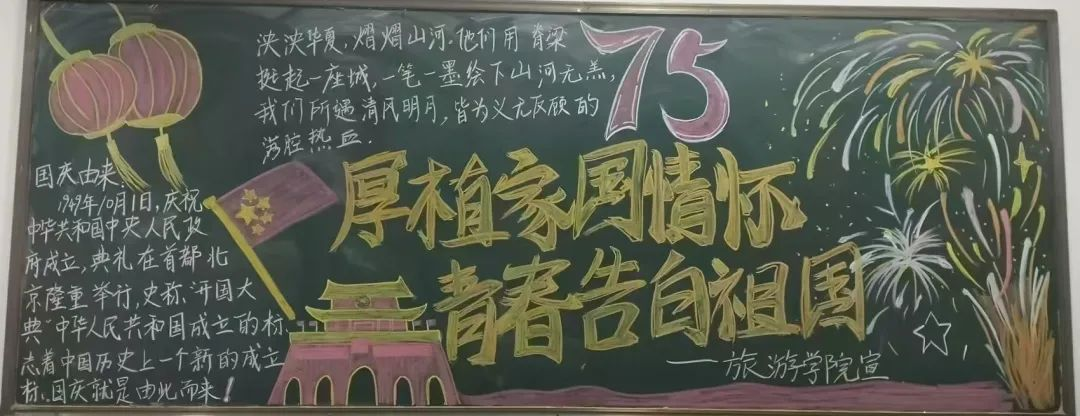 泱泱华夏,熠熠山河.他们用脊梁
挺起一座城,一笔一墨绘下山河无恙,
我们所遇清风明月,皆为义无反顾的
满腔热血.
75
厚植家国情怀
青春告白祖国
——旅游学院宣
国庆由来:
1949年10月1日,庆祝
中华共和国中央人民政
府成立,典礼在首都北
京隆重举行,史称,“开国大
典”中华人民共和国成立的标,
志着中国历史上一个新的成立
标,国庆就是由此而来!